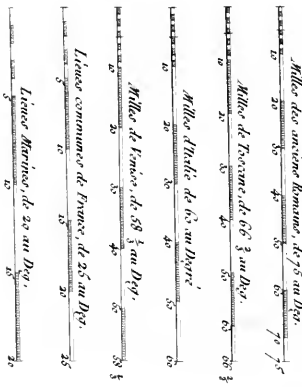 Milles des anciens Romains, de 75 au Deg.
10 20 30 40 50 60 70 75
Milles de Toscane, de 66 2/3 au Deg.
10 20 30 40 50 60 66 2/3
Milles d'Italie de 60 au Degré
10 20 30 40 50 60
Milles de Venise, de 58 1/3 au Deg.
10 20 30 40 50 58 1/3
Lieues communes de France, de 25 au Deg.
5 10 20 25
Lieues Marines, de 20 au Deg.
5 10 15 20